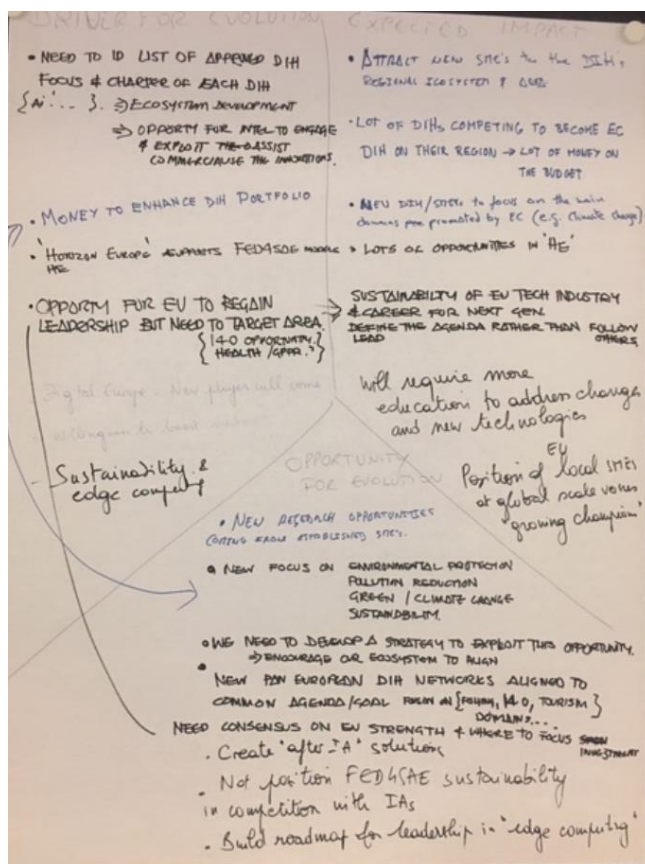 DRIVER FOR EVOLUTION
• NEED TO ID LIST OF APPROVED DIH
FOCUS & CHARTER OF EACH DIH
{Ai ... }. ⇒ ECOSYSTEM DEVELOPMENT
⇒ OPPORTY FOR INTEL TO ENGAGE
& EXPLOIT THE ASSIST
COMMERCIALISE THE INNOVATIONS.
• MONEY TO ENHANCE DIH PORTFOLIO
• 'HORIZON EUROPE' SUPPORTS FED4SAE MODEL → LOTS OF OPPORTUNITIES IN 'HE'
• OPPORTY FOR EU TO REGAIN
LEADERSHIP BUT NEED TO TARGET AREA.
{ I4.0 OPPORTUNITY }
{ HEALTH / }
Digital Europe - New player will come
- Sustainability &
edge computing
EXPECTED IMPACT
• ATTRACT NEW SME's to the DIH's
REGIONAL ECOSYSTEM &
• LOT OF DIHs COMPETING TO BECOME EC
DIH ON THEIR REGION → LOT OF MONEY ON
THE BUDGET
• NEW DIH/SMEs to focus on the main
domains promoted by EC (e.g. Climate change)
⇒ SUSTAINABILTY OF EU TECH INDUSTRY
& CAREER FOR NEXT GEN.
DEFINE THE AGENDA RATHER THAN FOLLOW
LEAD OTHERS
will require more
education to address changes
and new technologies
EU
Position of local SMEs
at global scale
"growing champion"
OPPORTUNITY
FOR EVOLUTION
• NEW RESEARCH OPPORTUNITIES
COMING FROM ESTABLISHED SMEs.
• NEW FOCUS ON ENVIRONMENTAL PROTECTION
POLLUTION REDUCTION
GREEN / CLIMATE CHANGE
SUSTAINBILITY.
• WE NEED TO DEVELOP A STRATEGY TO EXPLOIT THIS OPPORTUNITY.
⇒ ENCOURAGE OUR ECOSYSTEM TO ALIGN
• NEW PAN EUROPEAN DIH NETWORKS ALIGNED TO
COMMON AGENDA/GOAL FOCUS ON { I4.0, TOURISM }
DOMAINS...
NEED CONSENSUS ON EU STRENGTH & WHERE TO FOCUS
INVESTMENT
. Create "after IA" solutions
. Not position FED4SAE sustainability
in competition with IAs
. Build roadmap for leadership in "edge computing"